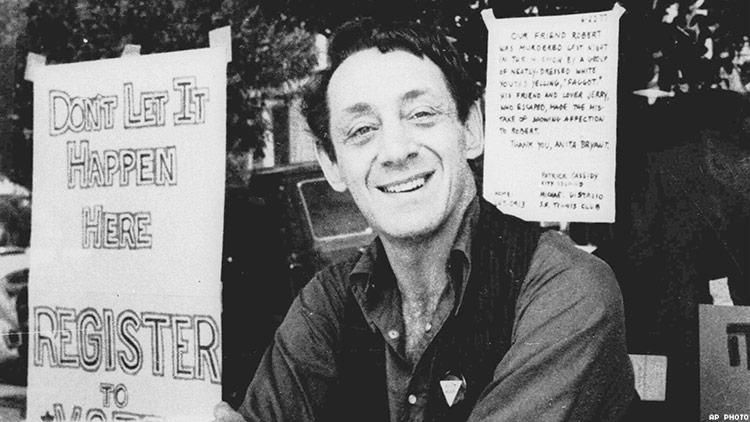 DON'T LET IT
HAPPEN
HERE
REGISTER
TO
VOTE
6-22-77
OUR FRIEND ROBERT
WAS MURDERED LAST NIGHT
IN THE MISSION BY A GROUP
OF NEATLY-DRESSED WHITE
YOUTHS YELLING, "FAGGOT."
HIS FRIEND AND LOVER JERRY,
WHO ESCAPED, MADE THE MIS-
TAKE OF SHOWING AFFECTION
TO ROBERT.
THANK YOU, ANITA BRYANT.
PATRICK CASSIDY
CITY
MICHAEL
S.F. TENNIS CLUB
AP PHOTO